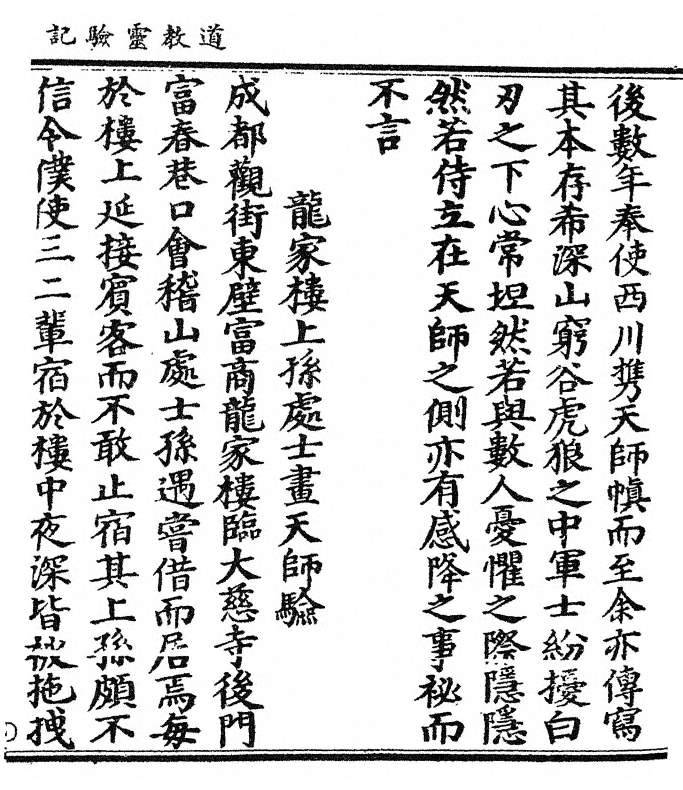 道教靈驗記
後數年奉使西川携天師幀而至余亦傳寫
其本存希深山窮谷虎狼之中軍士紛擾白
刃之下心常坦然若與數人憂懼之際隱隱
然若侍立在天師之側亦有感降之事祕而
不言
龍家樓上孫處士畫天師驗
成都觀街東壁富商龍家樓臨大慈寺後門
富春巷口會稽山處士孫遇嘗借而居焉每
於樓上延接賓客而不敢止宿其上孫頗不
信令僕使三二輩宿於樓中夜深皆被拖拽